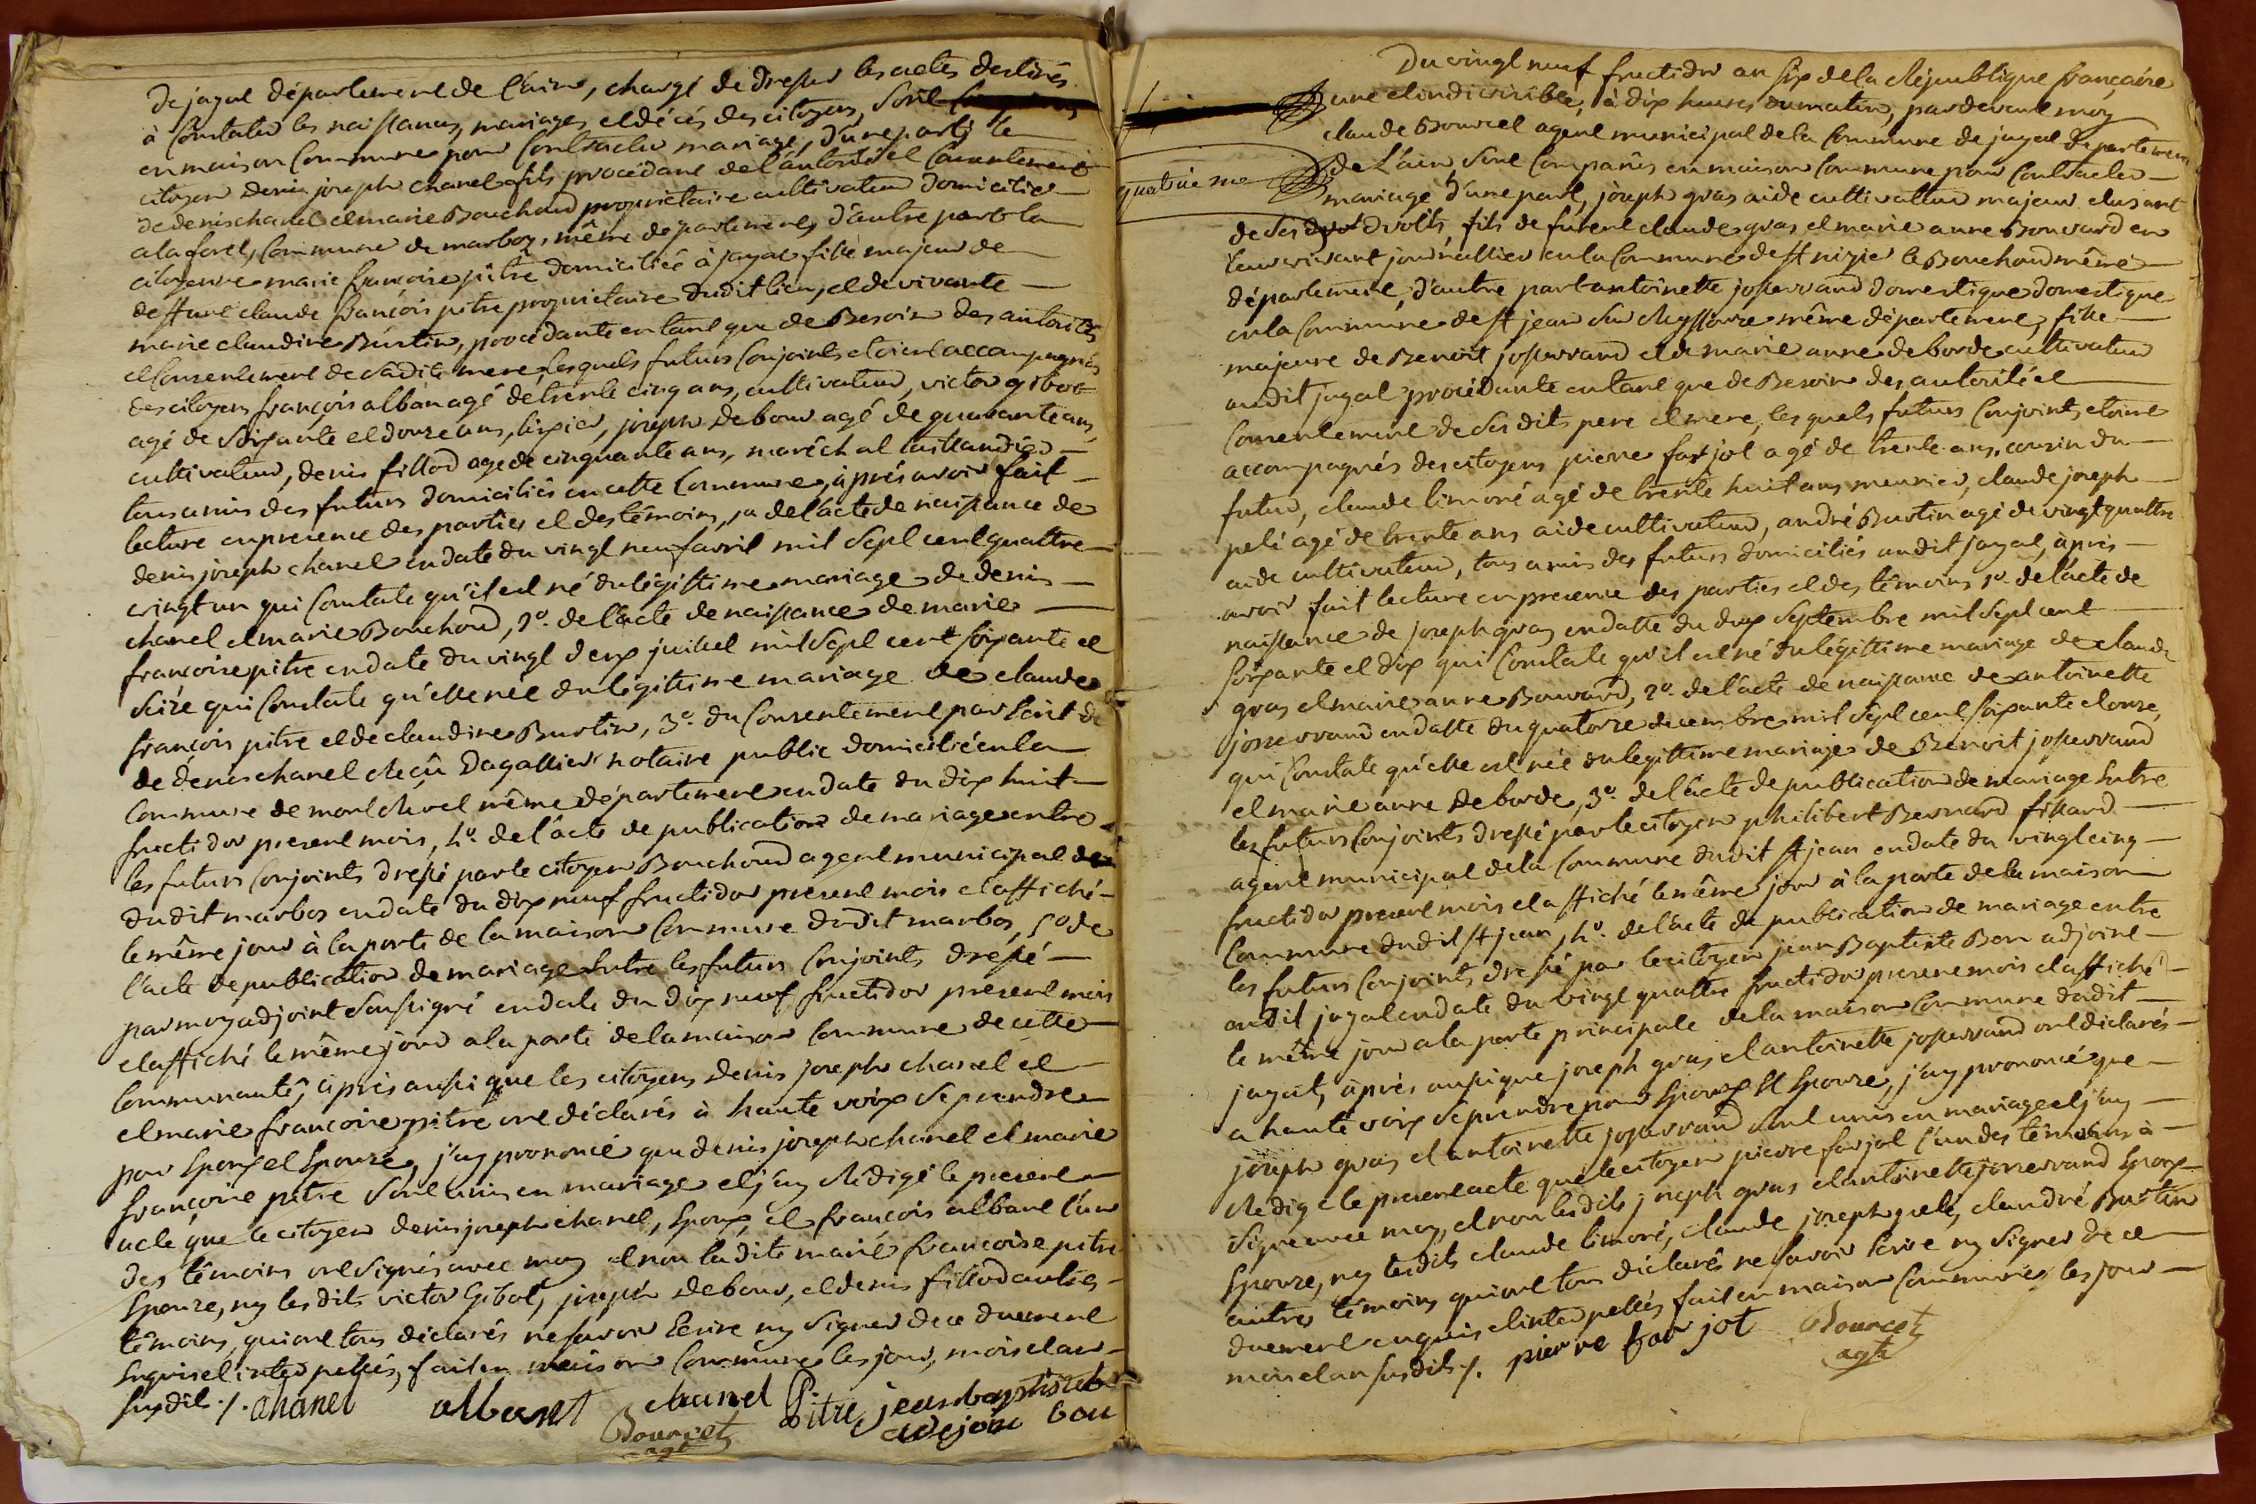 De jayat département de l'ain, chargé de dresser les actes destinés
à Constater les naissances, mariages et décés des citoyens, sont
en maison Commune pour Contracter mariage, d'une parti le
citoyen denis joseph chanel fils procédant de l'autorité et Consentement
de denis chanel et marie Bouchoud propriétaire cultivateur domicilié
a la foret, Commune de marboz, même département, d'autre part la
citoyenne marie françoise pitre domiciliée à jayat fille majeur de
deffunt claude françois pitre propriétaire dudit lieu, et de vivante
marie claudine Burtin, procédante en tant que de Besoin des autorités
et Consentement de sadite mere, lesquels futurs Conjoints étoient accompagnés
des citoyens françois alban agé de trente cinq ans, cultivateur, victor gibot
agé de soixante et douze ans, joseph Debour agé de quarante ans,
cultivateur, denis fillod agé de cinquante ans, maréchal taillandier
tous amis des futurs domiciliés en cette Commune, après avoir fait
lecture en presence des parties et des témoins, 1º de l'acte de naissance de
denis joseph chanel en date du vingt neuf avril mil sept cent quattre
vingt un qui Constate qu'il est né du légittime mariage de denis
chanel et marie Bouchoud, 2º. de l'acte de naissance de marie
françoise pitre en date du vingt deux juillet mil sept cent soixante et
seize qui Constate qu'elle née du légittime mariage de claude
françois pitre et de claudine Burtin, 3º. du Consentement par Ecrit de
de denis chanel Reçû Dagallier notaire public domicilié en la
Commune de mont Revel même département en date du dix huit
fructidor present mois, 4º. de l'acte de publication de mariage entre
les futurs Conjoints dressé par le citoyen Bouchoud agent municipal de
dudit marbos en date du dix neuf fructidor present mois et affiché
le même jour à la porte de la maison Commune dudit marbos, 5º de
l'acte de publication de mariage Entre les futurs Conjoints dressé
par moy adjoint Soussigné en date du dix neuf fructidor present mois
et affiché le même jour a la porte de la maison Commune de cette
Communauté, après aussi que les citoyens denis joseph chanel et
et marie françoise pitre ont déclarés à haute voix se prendre
pour Epoux et Epouze, j'ay prononcé que denis joseph chanel et marie
françoise pitre sont unis en mariage et j'ay Rédigé le present
acte que le citoyen denis joseph chanel, Epoux, et françois albant l'un
des témoins ont signés avec moy et non ladite marie françoise pitre
Epouze, ny les dits victor Gibot, joseph Debour, et denis fillod autres
témoins, qui ont tous déclarés ne savoir Ecrire ny signer de ce duement
Enquis et interpellés, fait en maison Commune les jour, mois et an
susdit ./. chanel albant chanel Pitre jean baptiste
Bourcet agt adejoin bon
Du vingt neuf fructidor an six de la République françaire
une et indivisible, à dix heures du matin, pardevant moy
claude Bourcet agent municipal de la Commune de jayat département
quatrième
de L'ain sont Comparûs en maison Commune pour Contracter
mariage d'une part, joseph gras aide cultivatteur majeur et usant
de ses droits, fils de furent claude gras et marie anne Bouvard en
leur vivant journallier en la Commune de St nizier le Bouchoud même
département, d'autre part antoinette josserand domestique domestique
en la Commune de St jean sur Reyssouze même département, fille
majeure de Benoit josserrand et de marie anne deborde cultivateur
audit jayat procédante en tant que de Besoin des autorité et
Consentement de ses dits pere et mere, les quels futurs Conjoints étoient
accompagnés des citoyens pierre farjot agé de trente ans, cousin du
futur, claude limoné agé de trente huit ans meunier, claude joseph
pelé agé de trente ans aide cultivateur, andré Burtin agé de vingt quattre
aide cultivateur, tous amis des futurs domiciliés audit jayat, après
avoir fait lecture en presence des parties et des témoins 1º. de l'acte de
naissance de joseph gras en datte du dix septembre mil sept cent
soixante et dix qui Constate qu'il est né du légittime mariage de claude
gras et marie anne Bouvard, 2º. de l'acte de naissance de antoinette
josserrand en datte du quatorze decembre mil sept cent soixante et onze,
qui Constate qu'elle est née du legittime mariage de Benoit josserrand
et marie anne Deborde, 3º. de l'acte de publication de mariage Entre
les futurs Conjoints dressé par le citoyen philibert Bernard fillard
agent municipal de la Commune dudit St jean en date du vingt cinq
fructidor present mois et affiché le même jour à la porte de la maison
Commune dudit St jean, 4º. de l'acte de publication de mariage entre
les futurs Conjoints dressé par le citoyen jean Baptiste Bon adjoint
audit jayat en date du vingt quattre fructidor present mois et affiché
le même jour a la porte principale de la maison Commune dudit
jayat, après aussi que joseph gras et antoinette josserrand ont déclarés
a haute voix se prendre pour Epoux Et Epouze, j'ay prononcé que
joseph gras et antoinette josserrand sont unis en mariage et j'ay
Redigé le present acte que le citoyen pierre farjot l'un des témoins à
signé avec moy, et non les dits joseph gras et antoinette josserrand Epoux
Epouze, ny les dits claude limoné, claude joseph pelé, et andré Burtin
autres témoins qui ont tous déclarés ne savoir Ecrire ny signer de ce
duement enquis et interpellés fait en maison Commune les jour
mois et an susdits ./. pierre farjot Bourcet
agt